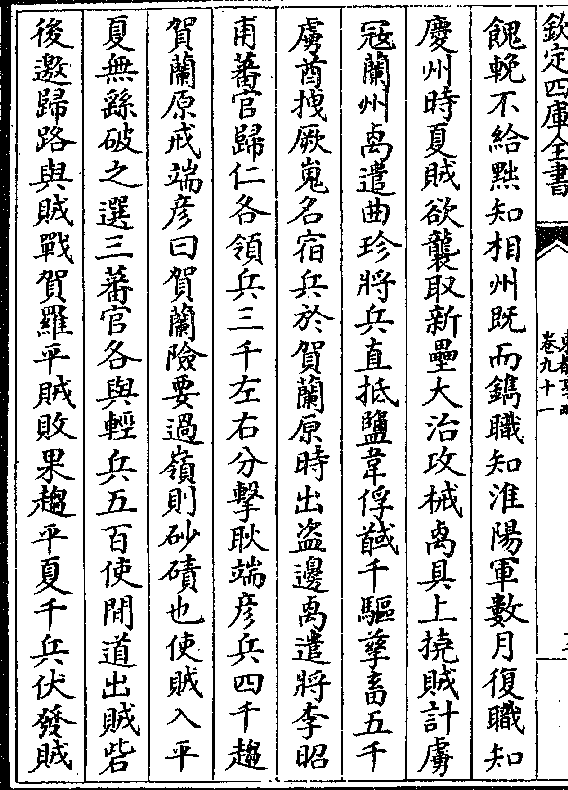 欽定四庫全書
卷九十一
餽輓不給黜知相州既而鐫職知淮陽軍數月復職知
慶州時夏賊欲襲取新壘大治攻械禼具上撓賊計虜
冦蘭州禼遣曲珍將兵直抵鹽韋俘馘千驅孳畜五千
虜酋拽厥嵬名宿兵於賀蘭原時出盜邊禼遣將李昭
甫蕃官歸仁各領兵三千左右分擊耿端彦兵四千趨
賀蘭原戒端彦曰賀蘭險要過嶺則砂磧也使賊入平
夏無繇破之選三蕃官各與輕兵五百使間道出賊砦
後邀歸路與賊戰賀羅平賊敗果趨平夏千兵伏發賊